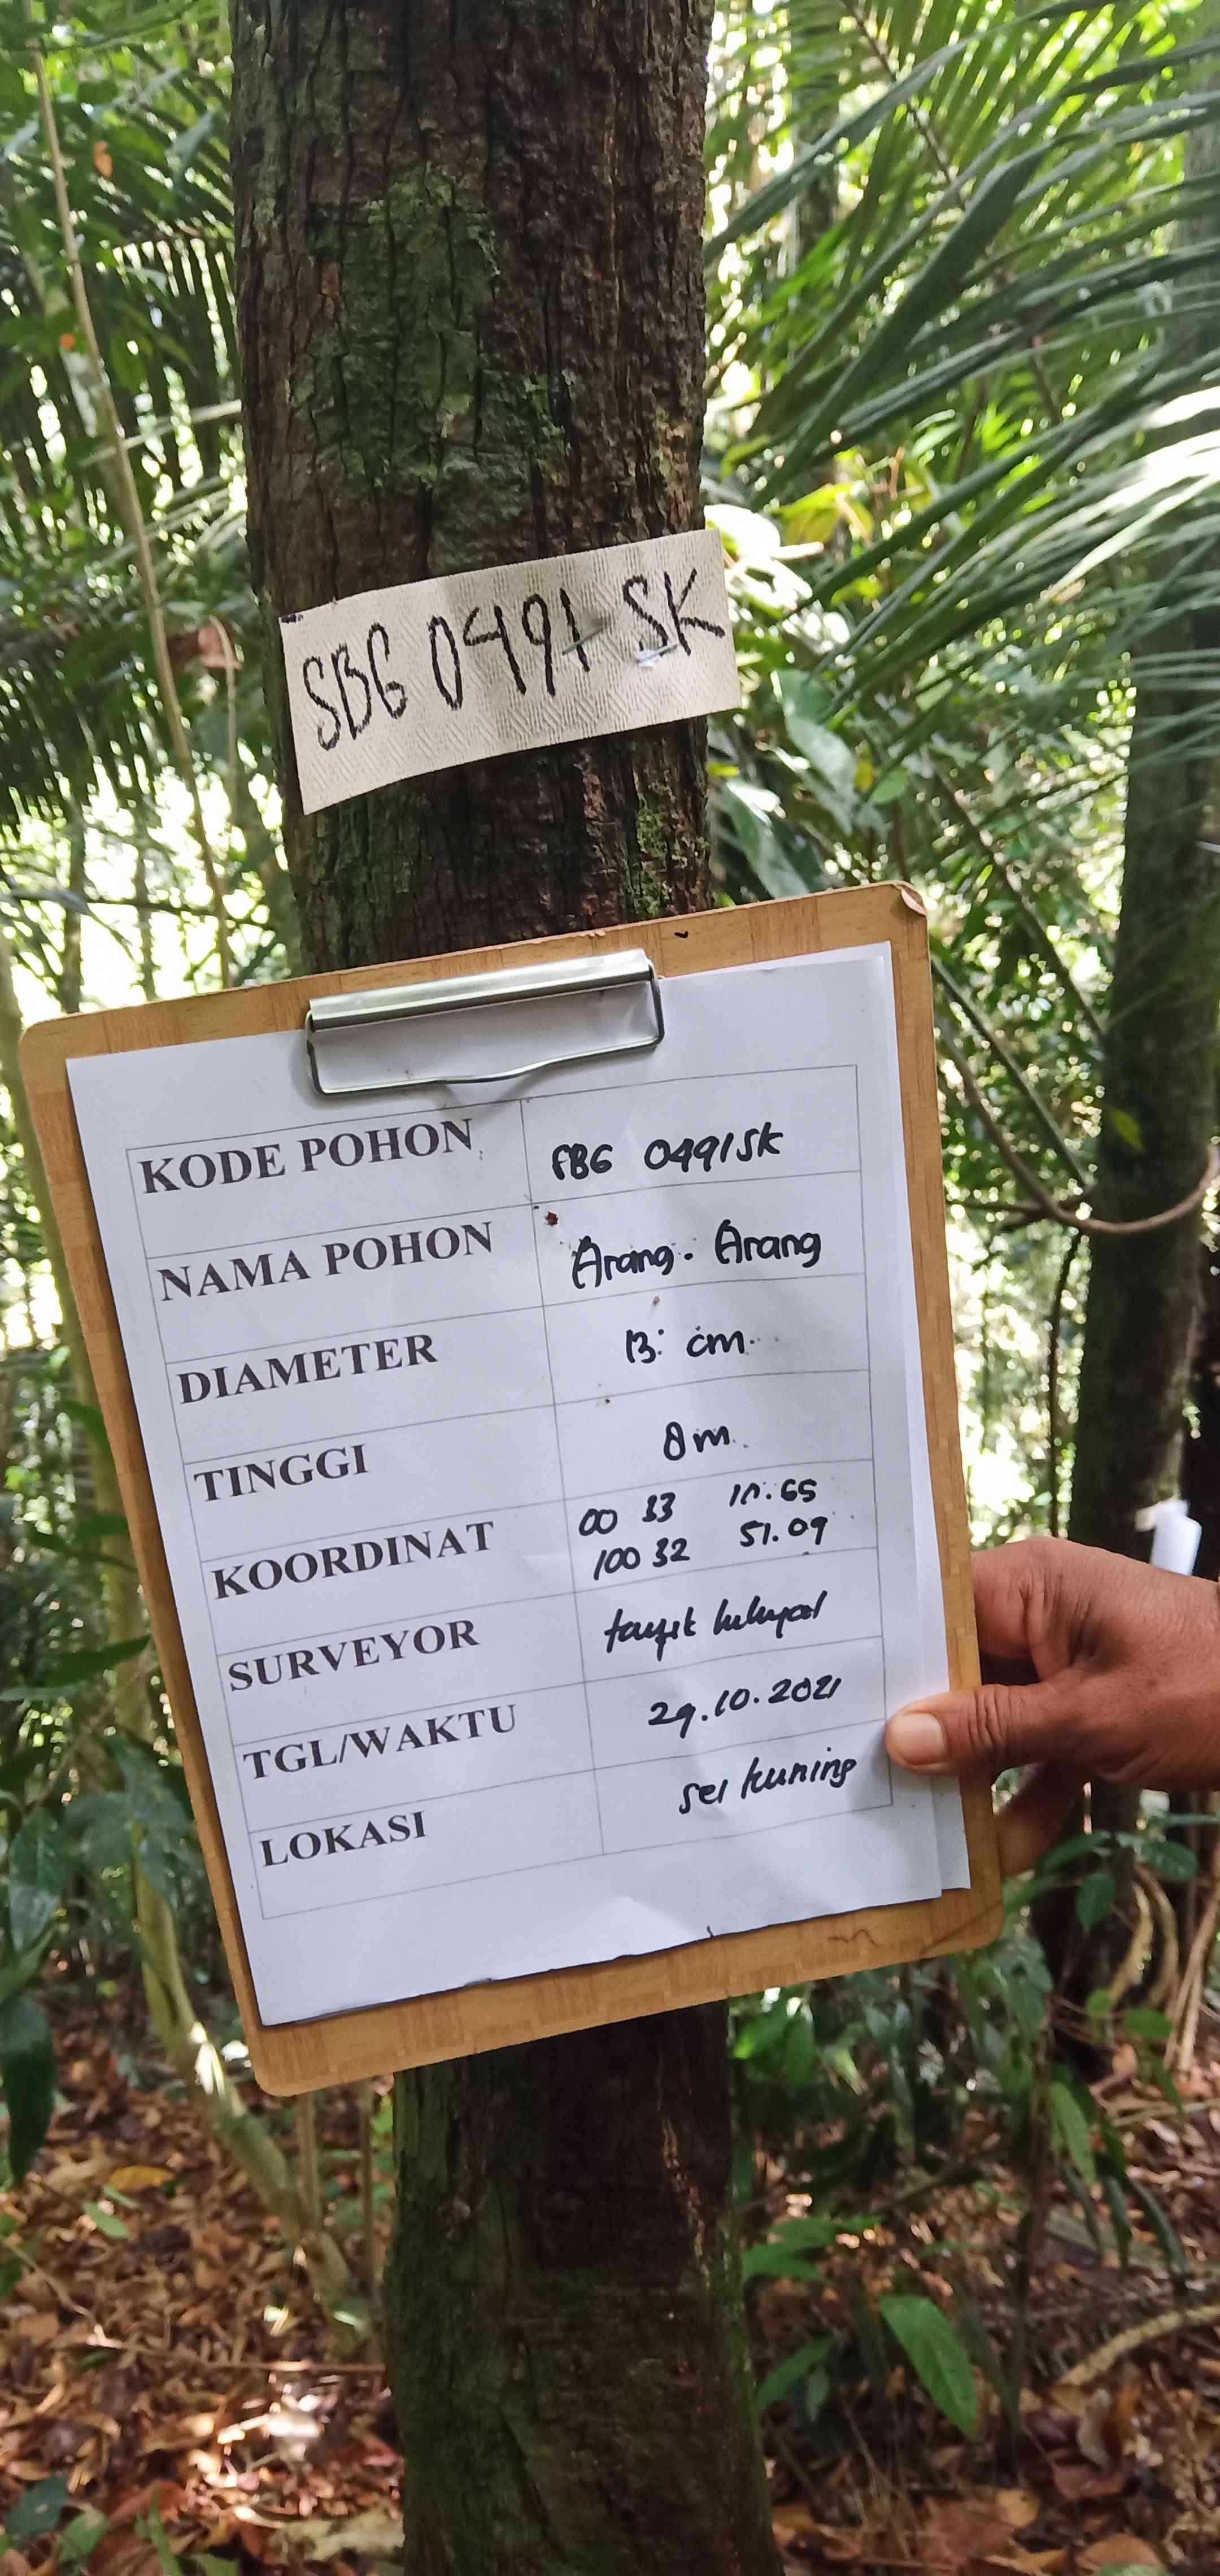 SBG 0491 SK
KODE POHON SBG 0491SK
NAMA POHON Arang. Arang
DIAMETER 13: cm.
TINGGI 8m.
KOORDINAT 00 33 65
100 32 51.09
SURVEYOR
TGL/WAKTU 29.10.2021
LOKASI sei kuning